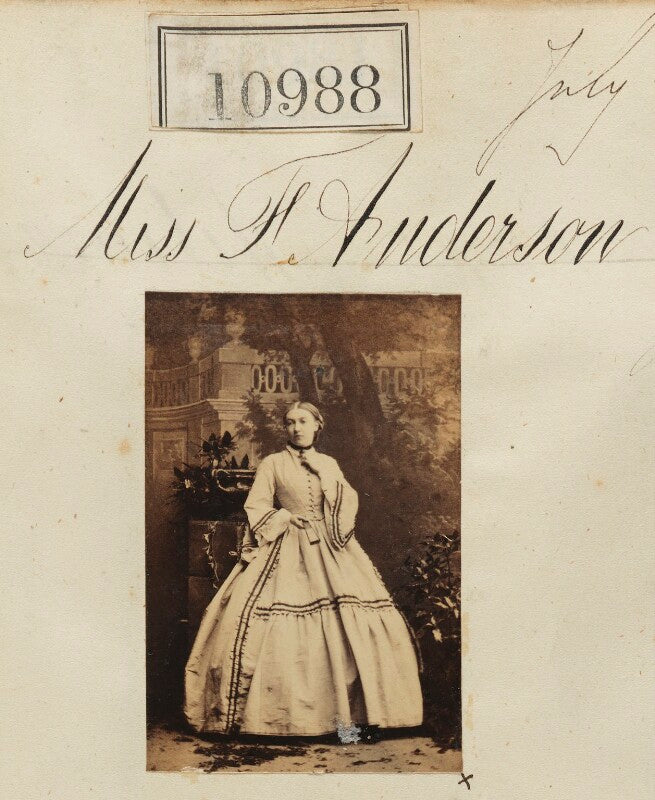 10988
July
Miss F. Anderson
x